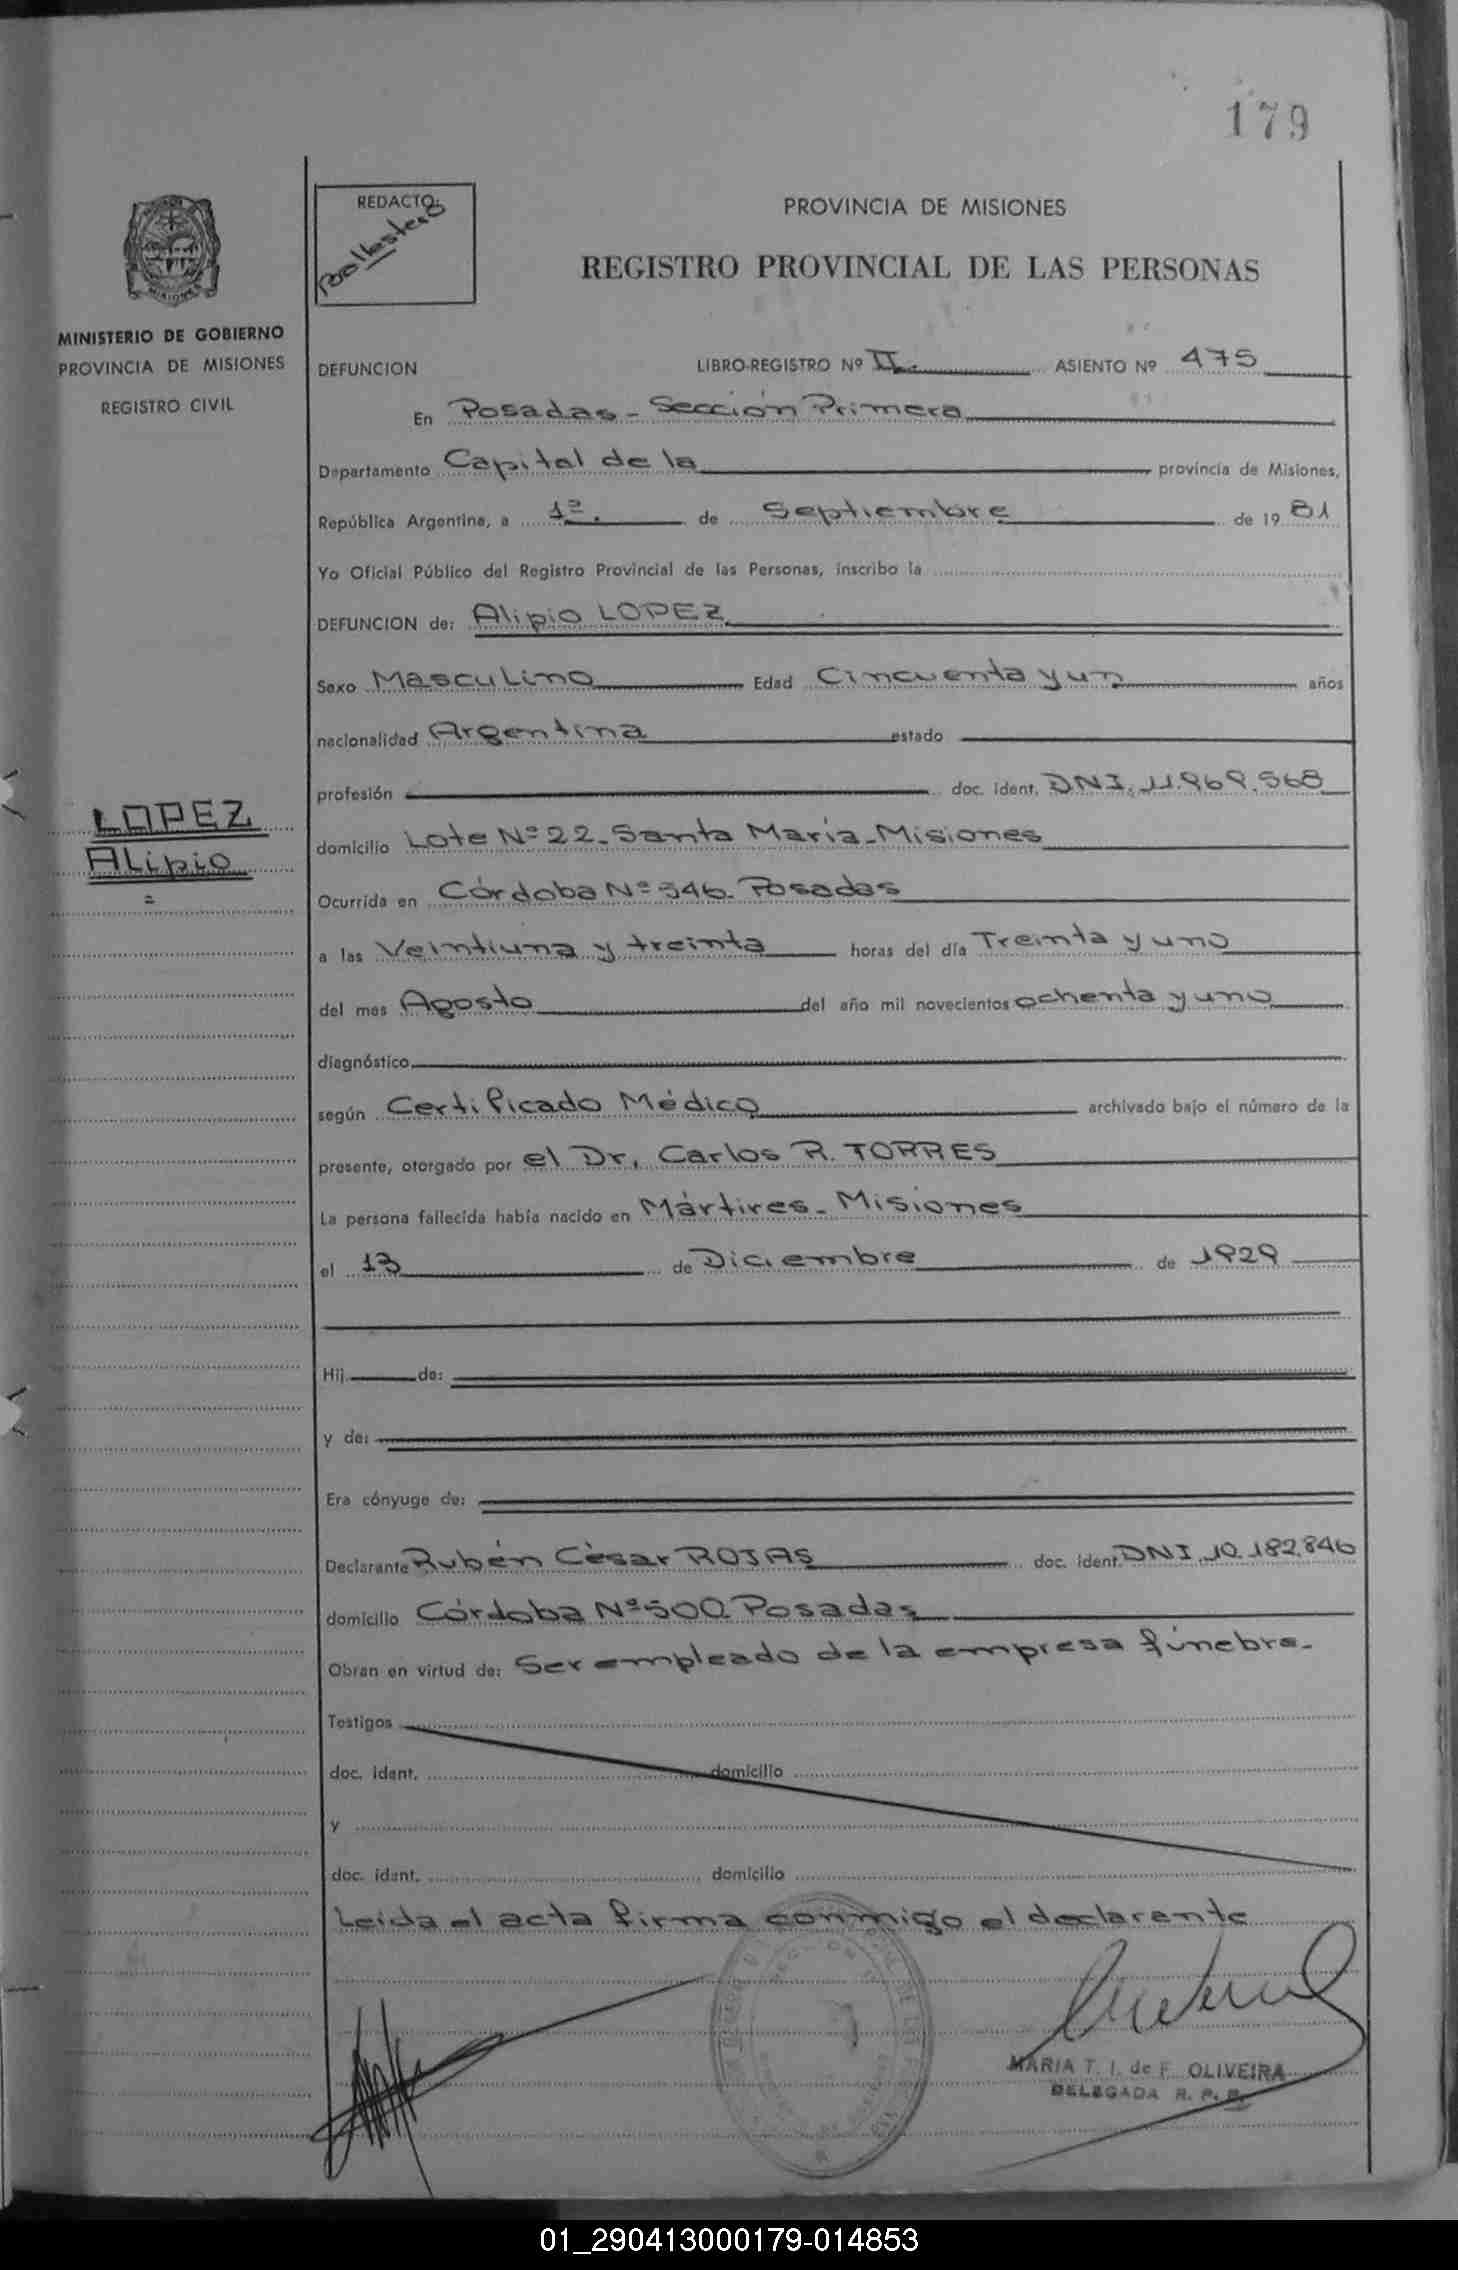 179
REDACTO:
Ballesteros
PROVINCIA DE MISIONES
REGISTRO PROVINCIAL DE LAS PERSONAS
MINISTERIO DE GOBIERNO
PROVINCIA DE MISIONES
REGISTRO CIVIL
DEFUNCION LIBRO-REGISTRO Nº II. ASIENTO Nº 475
En Posadas - Sección Primera
Departamento Capital de la provincia de Misiones,
República Argentina, a 1º. de Septiembre de 19 81
Yo Oficial Público del Registro Provincial de las Personas, inscribo la
DEFUNCION de: Alipio LOPEZ
Sexo Masculino Edad Cincuenta y un años
nacionalidad Argentina estado
profesión doc. ident. DNI. 11.969.568
LOPEZ
Alipio
domicilio Lote Nº 22. Santa María - Misiones
Ocurrida en Córdoba Nº 346. Posadas
a las Veintiuna y treinta horas del día Treinta y uno
del mes Agosto del año mil novecientos ochenta y uno
diagnóstico
según Certificado Médico archivado bajo el número de la
presente, otorgado por el Dr. Carlos R. TORRES
La persona fallecida había nacido en Mártires - Misiones
el 13 de Diciembre de 1929
Hij de:
y de:
Era cónyuge de:
Declarante Rubén Cèsar ROJAS doc. ident. DNI 10.182.846
domicilio Córdoba Nº 500. Posadas
Obran en virtud de: Ser empleado de la empresa fúnebre-
Testigos
doc. ident. domicilio
y
doc. ident. domicilio
Leída el acta firma conmigo el declarante
MARIA T. I. de F. OLIVEIRA
DELEGADA R. P. P.
01_290413000179-014853